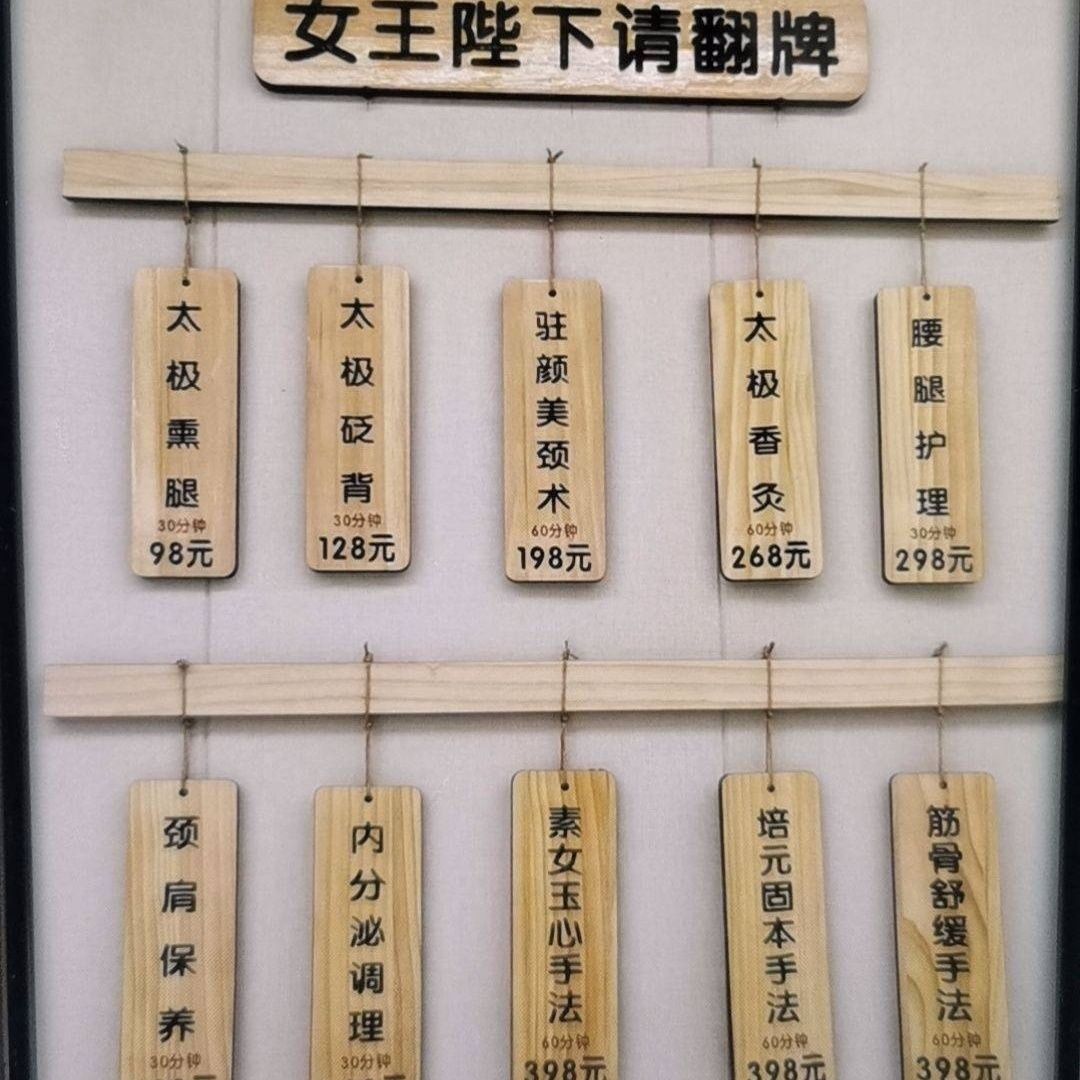 女王陛下请翻牌
太极熏腿
30分钟
98元
太极砭背
30分钟
128元
驻颜美颈术
60分钟
198元
太极香灸
60分钟
268元
腰腿护理
30分钟
298元
颈肩保养
30分钟
内分泌调理
30分钟
素女玉心手法
60分钟
398元
培元固本手法
60分钟
398元
筋骨舒缓手法
60分钟
398元